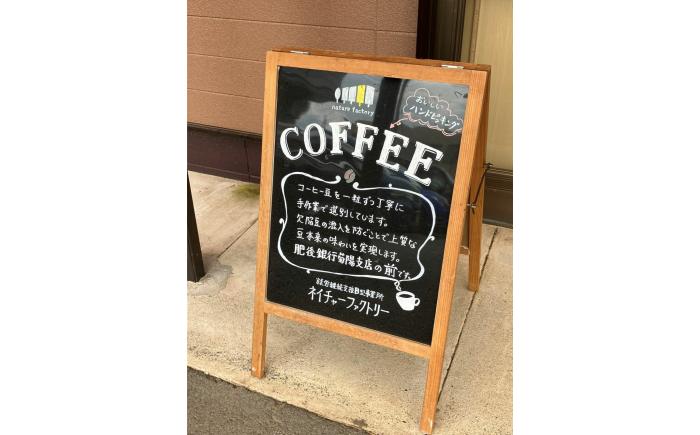 nature factory
おいしい
ハンドピッキング
COFFEE
コーヒー豆を一粒ずつ丁寧に
手作業で選別しています。
欠陥豆の混入を防ぐことで上質な
豆本来の味わいを実現します。
肥後銀行菊陽支店の前です。
就労継続支援B型事業所
ネイチャーファクトリー